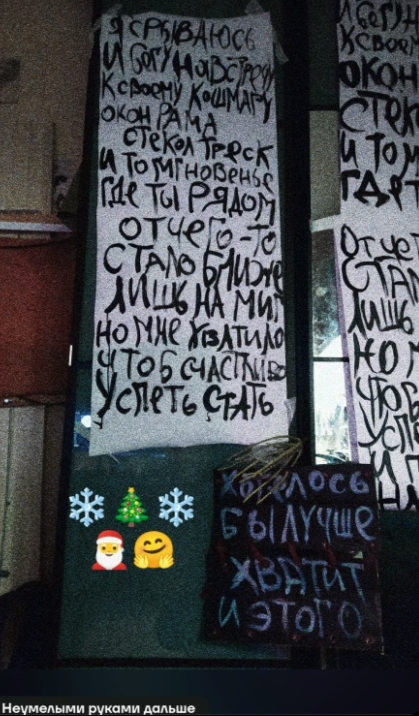 Я СРЫВАЮСЬ
И БЕГУ НАВСТРЕЧУ
К СВОЕМУ КОШМАРУ
ОКОН РАМА
СТЕКОЛ ТРЕСК
И ТО МГНОВЕНЬЕ
ГДЕ ТЫ РЯДОМ
ОТЧЕГО-ТО
СТАЛО БЛИЖЕ
ЛИШЬ НА МИГ
НО МНЕ ХВАТИЛО
ЧТОБ СЧАСТЛИВО
УСПЕТЬ СТАТЬ
К СВОЕ
ОКОН
СТЕК
И ТО М
ГДЕ Т
ОТЧЕ
СТА
ЛИШЬ
НО М
ЧТОБ
УСПЕ
ХОТЕЛОСЬ
БЫ ЛУЧШЕ
ХВАТИТ
И ЭТОГО
Неумелыми руками дальше